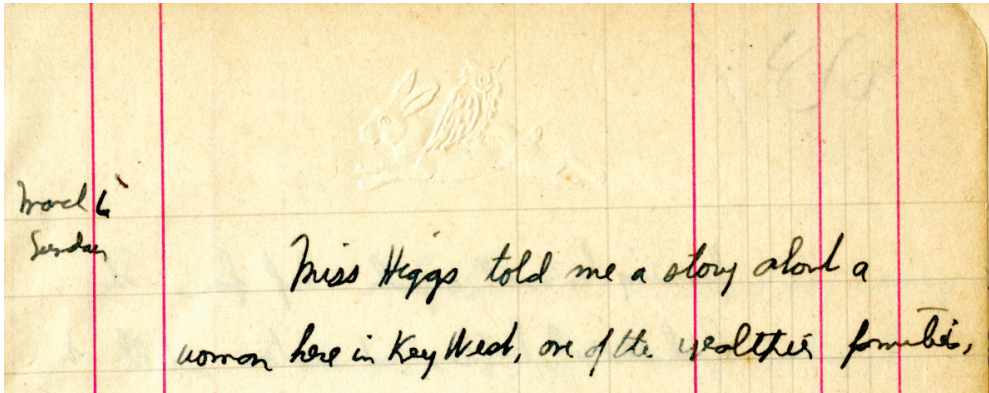 March 6
Sunday
Miss Higgs told me a story about a
woman here in Key West, one of the wealthier families,